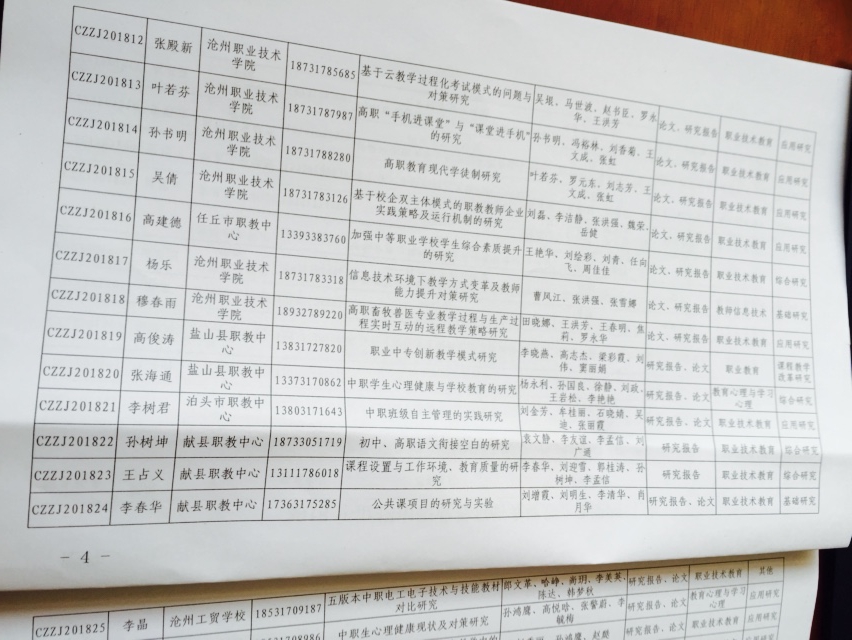 CZZJ201812 张殿新 沧州职业技术学院 18731785685 基于云教学过程化考试模式的问题与对策研究 吴垠、马世波、赵书臣、罗永华、王洪芳 论文、研究报告 职业技术教育 应用研究
CZZJ201813 叶若芬 沧州职业技术学院 18731787987 高职“手机进课堂”与“课堂进手机”的研究 孙书明、冯裕林、刘香菊、王文成、张虹 论文、研究报告 职业技术教育 应用研究
CZZJ201814 孙书明 沧州职业技术学院 18731788280 高职教育现代学徒制研究 叶若芬、罗元东、刘志芳、王文成、张虹 论文、研究报告 职业技术教育 应用研究
CZZJ201815 吴倩 沧州职业技术学院 18731783126 基于校企双主体模式的职教教师企业实践策略及运行机制的研究 刘磊、李洁静、张洪强、魏荣、岳健 论文、研究报告 职业技术教育 应用研究
CZZJ201816 高建德 任丘市职教中心 13393383760 加强中等职业学校学生综合素质提升的研究 王艳华、刘绘彩、刘青、任向飞、周佳佳 论文、研究报告 职业技术教育 综合研究
CZZJ201817 杨乐 沧州职业技术学院 18731783318 信息技术环境下教学方式变革及教师能力提升对策研究 曹凤江、张洪强、张雪娜 论文、研究报告 教师信息技术 基础研究
CZZJ201818 穆春雨 沧州职业技术学院 18932789220 高职畜牧兽医专业教学过程与生产过程实时互动的远程教学策略研究 田晓娜、王洪芳、王春明、焦莉、罗永华 论文、研究报告 职业技术教育 应用研究
CZZJ201819 高俊涛 盐山县职教中心 13831727820 职业中专创新教学模式研究 李晓燕、高志杰、梁彩霞、刘伟、窦丽娟 研究报告、论文 职业教育 课程教学改革研究
CZZJ201820 张海通 盐山县职教中心 13373170862 中职学生心理健康与学校教育的研究 杨永利、孙国良、徐静、刘政、王岩松、李艳艳 研究报告、论文 教育心理与学习心理 综合研究
CZZJ201821 李树君 泊头市职教中心 13803171643 中职班级自主管理的实践研究 刘金芳、牟桂丽、石晓婧、吴迪、张丽霞 研究报告、论文 职业技术教育 应用研究
CZZJ201822 孙树坤 献县职教中心 18733051719 初中、高职语文衔接空白的研究 袁文静、李友谊、李孟信、刘广通 研究报告 职业技术教育 综合研究
CZZJ201823 王占义 献县职教中心 13111786018 课程设置与工作环境、教育质量的研究 李春华、刘迎雪、郭桂涛、孙树坤、李孟信 研究报告 职业技术教育 综合研究
CZZJ201824 李春华 献县职教中心 17363175285 公共课项目的研究与实验 刘增霞、刘明生、李清华、肖月华 研究报告、论文 职业技术教育 基础研究
- 4 -
五版本中职电工电子技术与技能教材对比研究 郎文革、哈峥、尚玥、李美英、陈达、韩梦秋 研究报告、论文 职业技术教育 其他
CZZJ201825 李晶 沧州工贸学校 18531709187 中职生心理健康现状及对策研究 孙鸿鹰、高悦晗、张誓蔚、李毓梅 研究报告、论文 教育心理与学习心理 应用研究